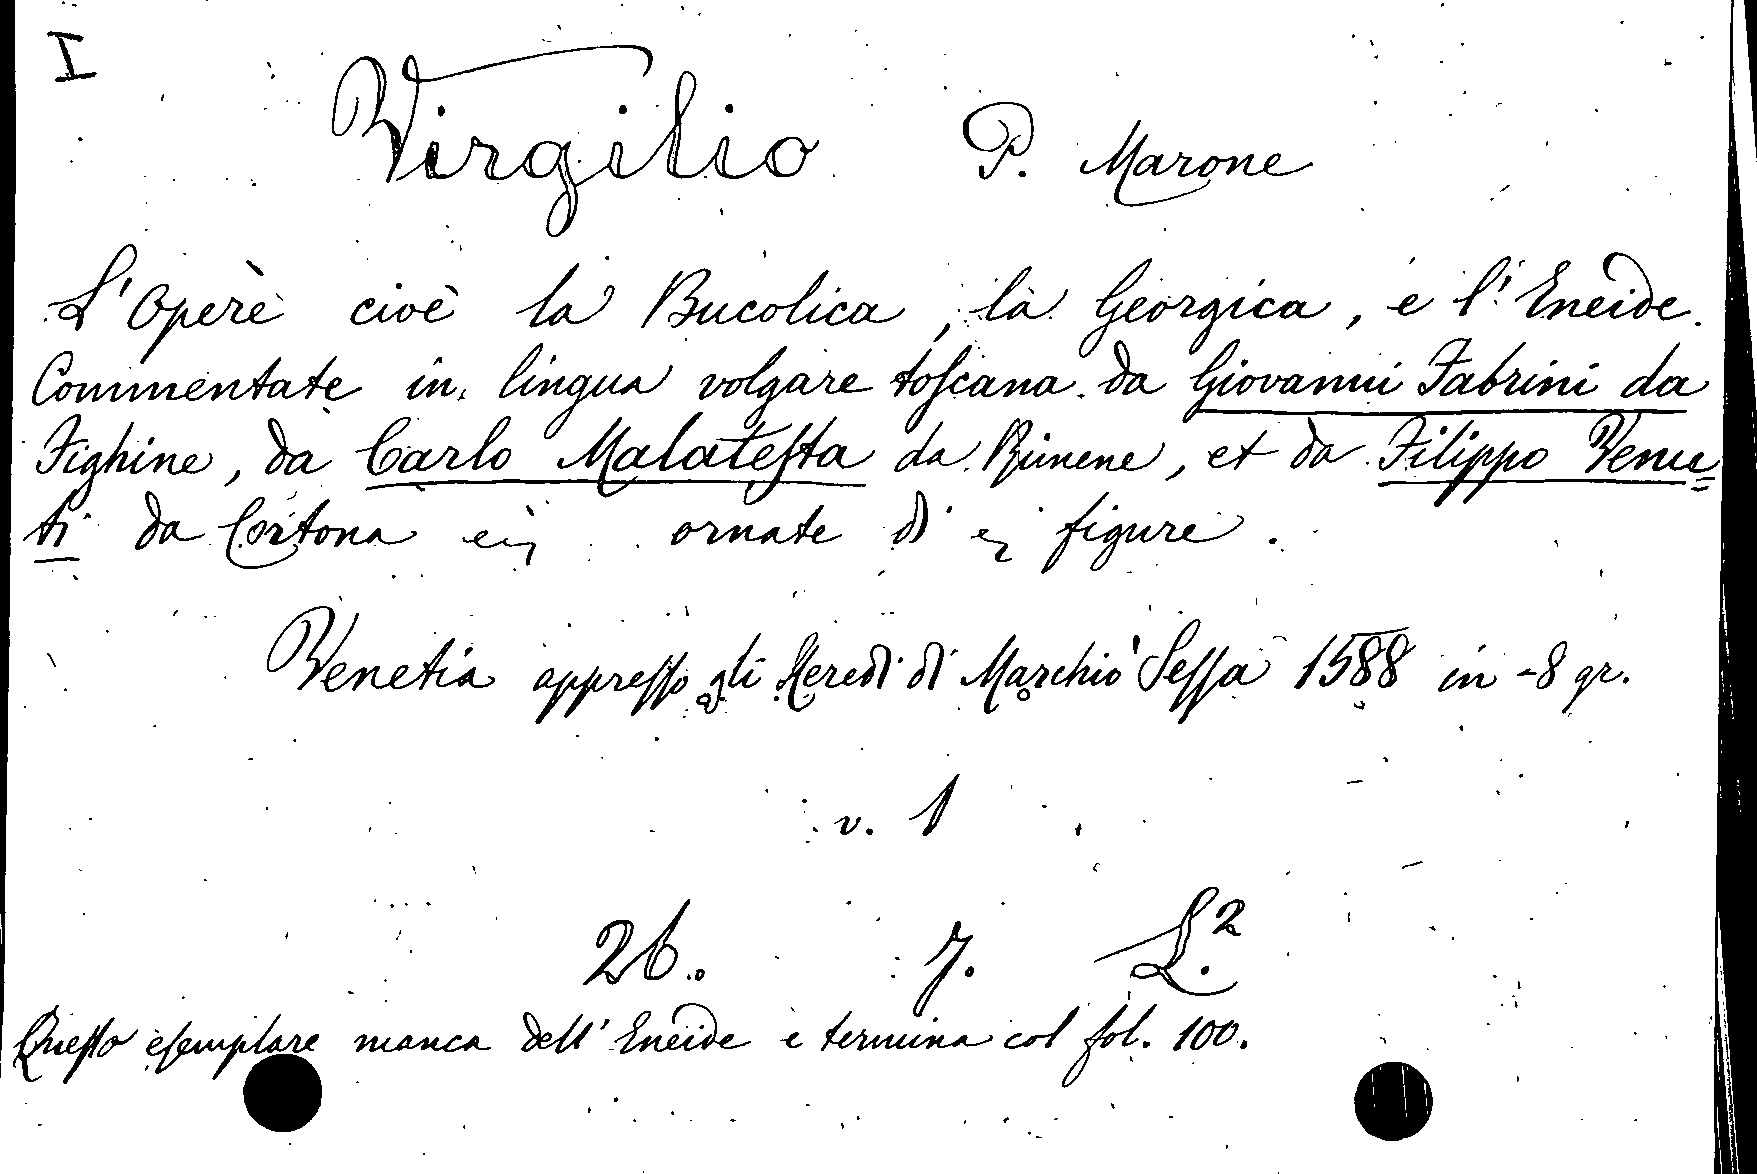 I
Virgilio P. Marone
L'Opere cioè la Bucolica, la Georgica, e l'Eneide.
Commentate in lingua volgare toscana da Giovanni Fabrini da
Fighine, da Carlo Malatesta da Rimene, et da Filippo Venu=
ti da Cortona ornate di figure.
Venetia appresso gli Heredi di Marchio Sessa 1588 in -8 gr.
v. 1
26. 7. L.2
Questo esemplare manca dell'Eneide e termina col fol. 100.